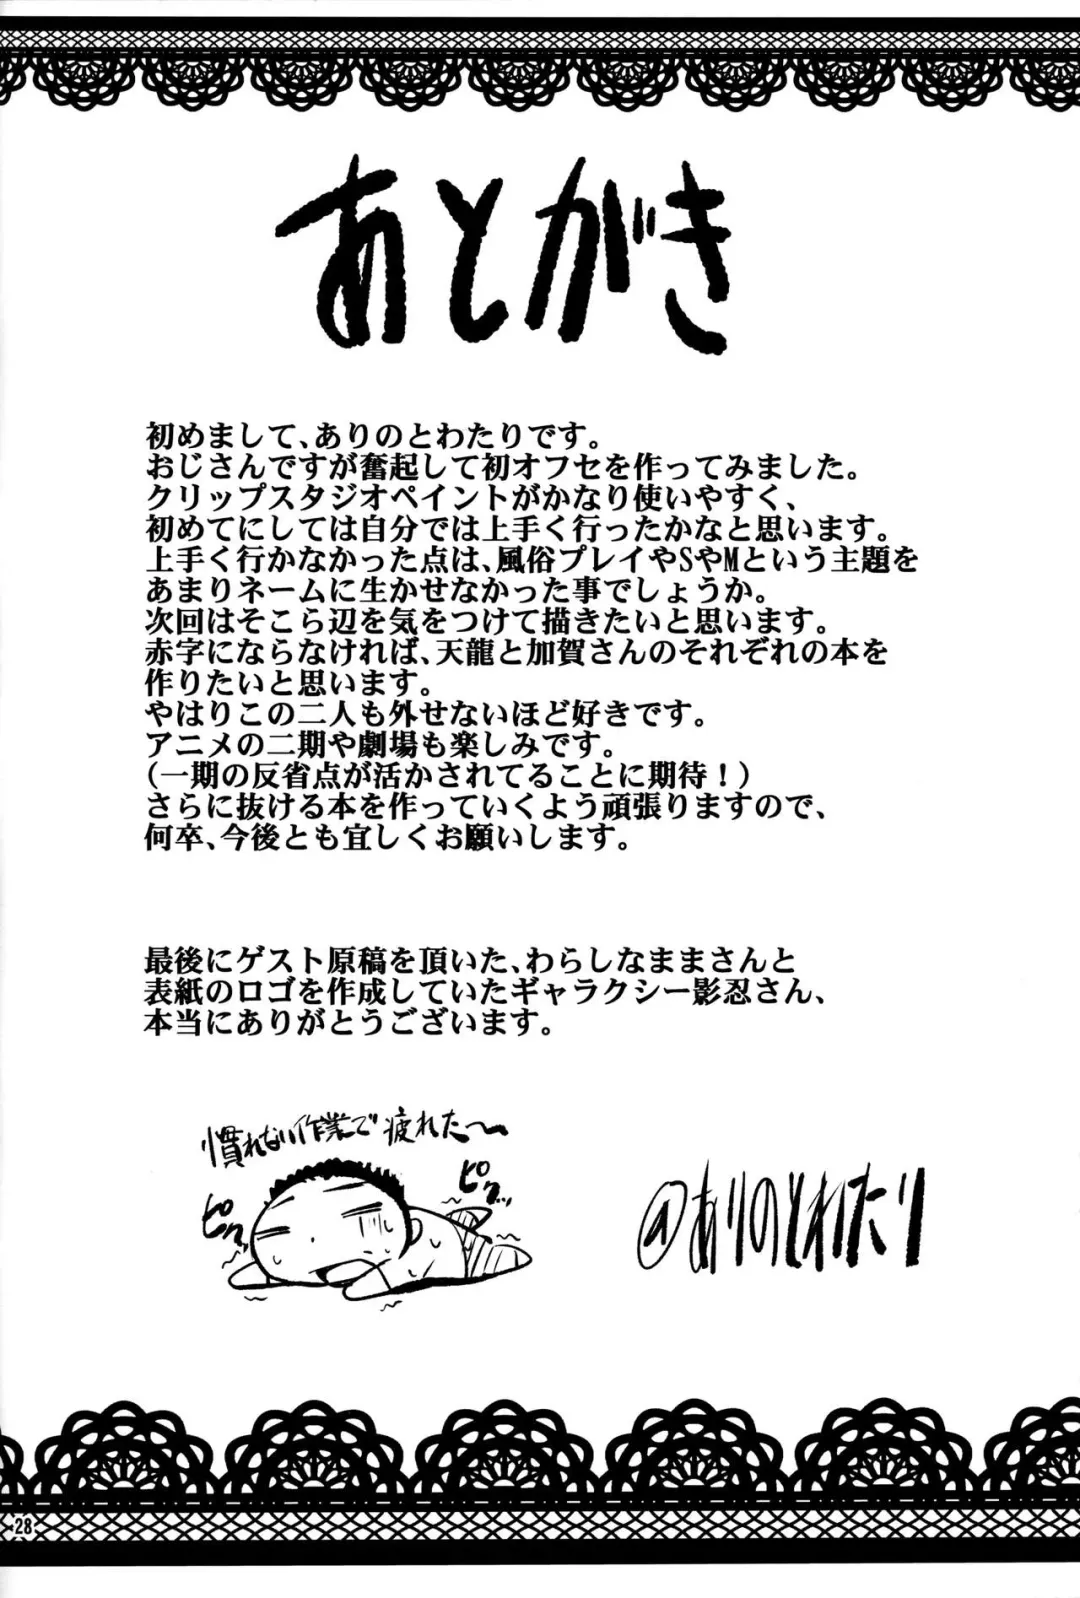 あとがき
初めまして、ありのとわたりです。
おじさんですが奮起して初オフセを作ってみました。
クリップスタジオペイントがかなり使いやすく、
初めてにしては自分では上手く行ったかなと思います。
上手く行かなかった点は、風俗プレイやSやMという主題を
あまりネームに生かせなかった事でしょうか。
次回はそこら辺を気をつけて描きたいと思います。
赤字にならなければ、天龍と加賀さんのそれぞれの本を
作りたいと思います。
やはりこの二人も外せないほど好きです。
アニメの二期や劇場も楽しみです。
(一期の反省点が活かされてることに期待!)
さらに抜ける本を作っていくよう頑張りますので、
何卒、今後とも宜しくお願いします。
最後にゲスト原稿を頂いた、わらしなままさんと
表紙のロゴを作成していたギャラクシー影忍さん、
本当にありがとうございます。
慣れない作業で疲れた〜
ピク
ピク…ッ
@ありのとわたり
28